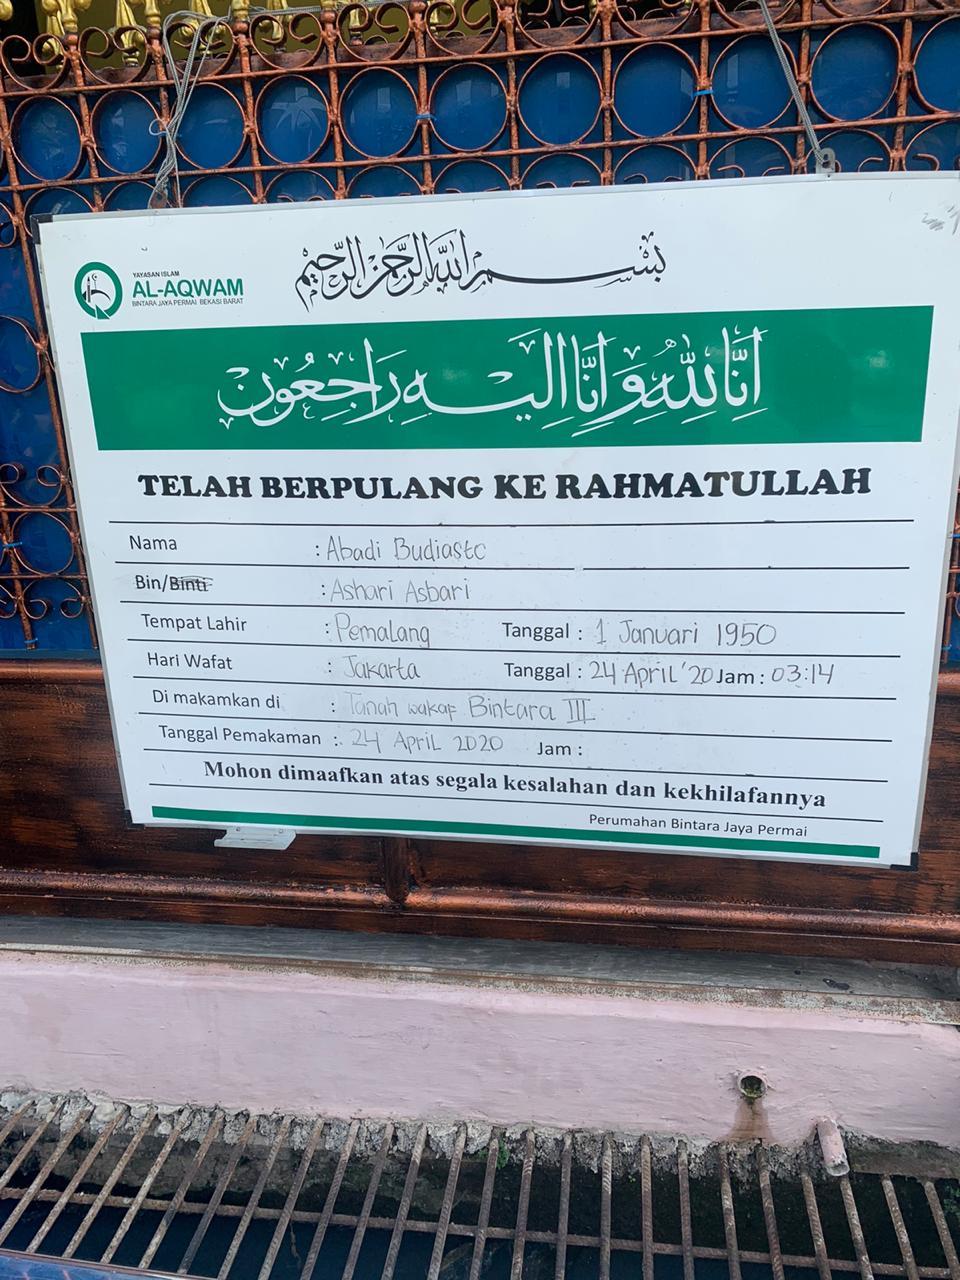 بسم الله الرحمن الرحيم
YAYASAN ISLAM
AL-AQWAM
BINTARA JAYA PERMAI BEKASI BARAT
اِنَّا لِلّٰهِ وَاِنَّا اِلَيْهِ رَاجِعُوْنَ
TELAH BERPULANG KE RAHMATULLAH
Nama : Abadi Budiasto
Bin/Binti : Ashari Asbari
Tempat Lahir : Pemalang Tanggal : 1 Januari 1950
Hari Wafat : Jakarta Tanggal : 24 April '20 Jam : 03:14
Di makamkan di : Tanah wakaf Bintara III
Tanggal Pemakaman : 24 April 2020 Jam :
Mohon dimaafkan atas segala kesalahan dan kekhilafannya
Perumahan Bintara Jaya Permai